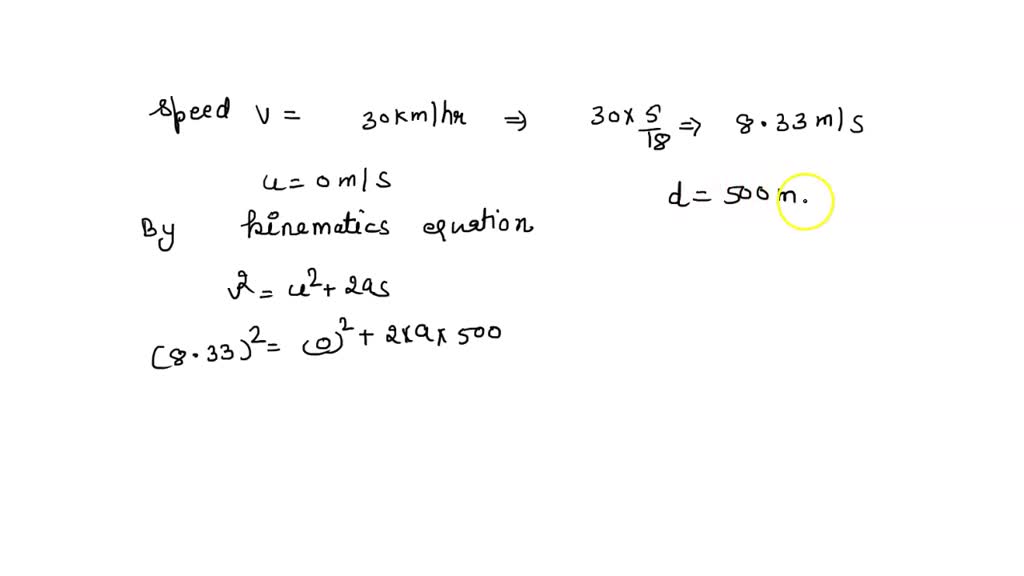 speed v = 30km/hr ⇒ 30 x 5/18 ⇒ 8.33 m/s
u = 0 m/s
d = 500 m.
By kinematics equation
v² = u² + 2as
(8.33)² = (0)² + 2 x a x 500